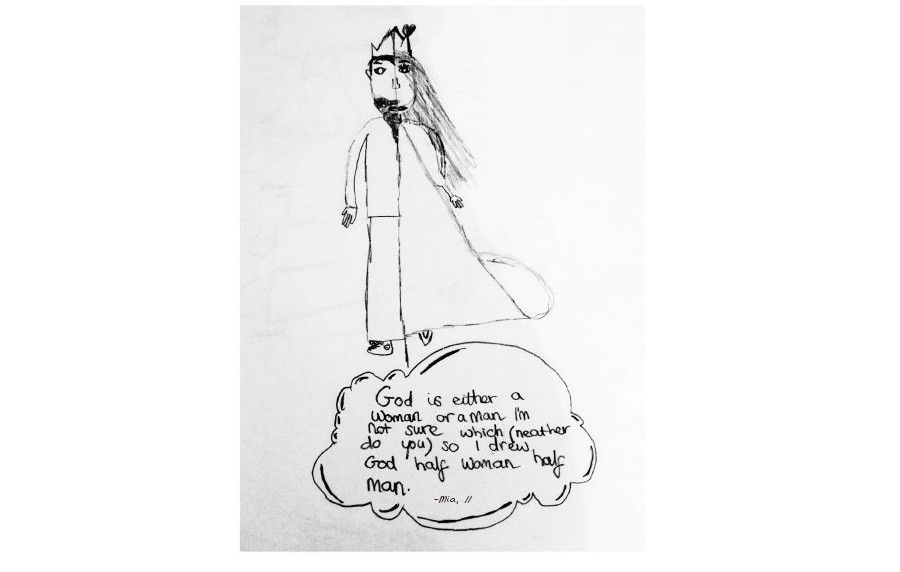 God is either a
Woman or a man I'm
not sure which (neather
do you) so I drew
God half woman half
man.
-Mia, 11